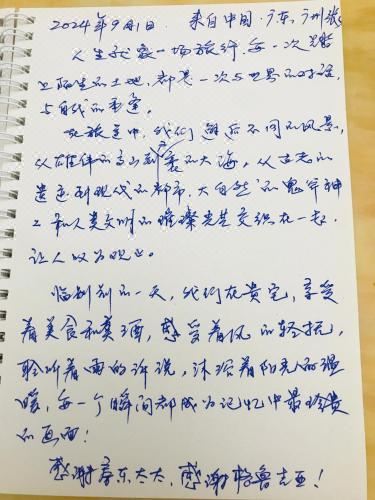 2024年9月1日. 来自中国·广东,广州张
人生就像一场旅行,每一次踏
上陌生的土地,都是一次与世界的对话,
与自我的重逢。
在旅途中,我们邂逅不同的风景,
从雄伟的高山到 的大海,从古老的
遗迹到现代的都市,大自然的鬼斧神
工和人类文明的璀璨光芒交织在一起,
让人叹为观止。
临别的一天,我们在贵宅,享受
着美食和美酒,感受着风的轻抚,
聆听着雨的诉说,沐浴着阳光的温
暖,每一个瞬间都成为记忆中最珍贵
的画面!
感谢房东太太,感谢格鲁吉亚!